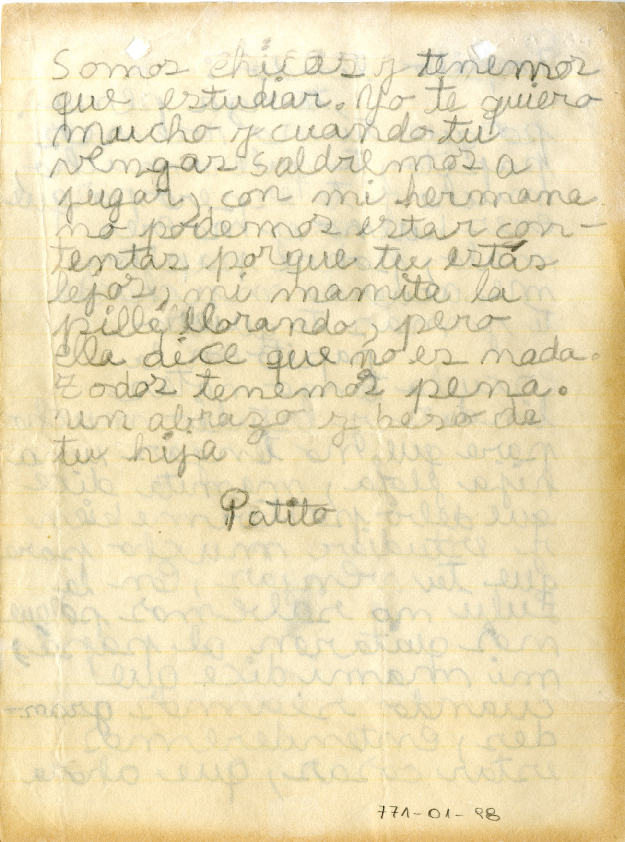 Somos chicas y tenemos
que estudiar. Yo te quiero
mucho y cuando tu
vengas saldremos a
jugar, con mi hermana
no podemos estar con-
tentas porque tu estás
lejos, mi mamita la
pillé llorando, pero
ella dice que no es nada.
Todos tenemos pena.
un abrazo y beso de
tu hija
Patito
771-01-98